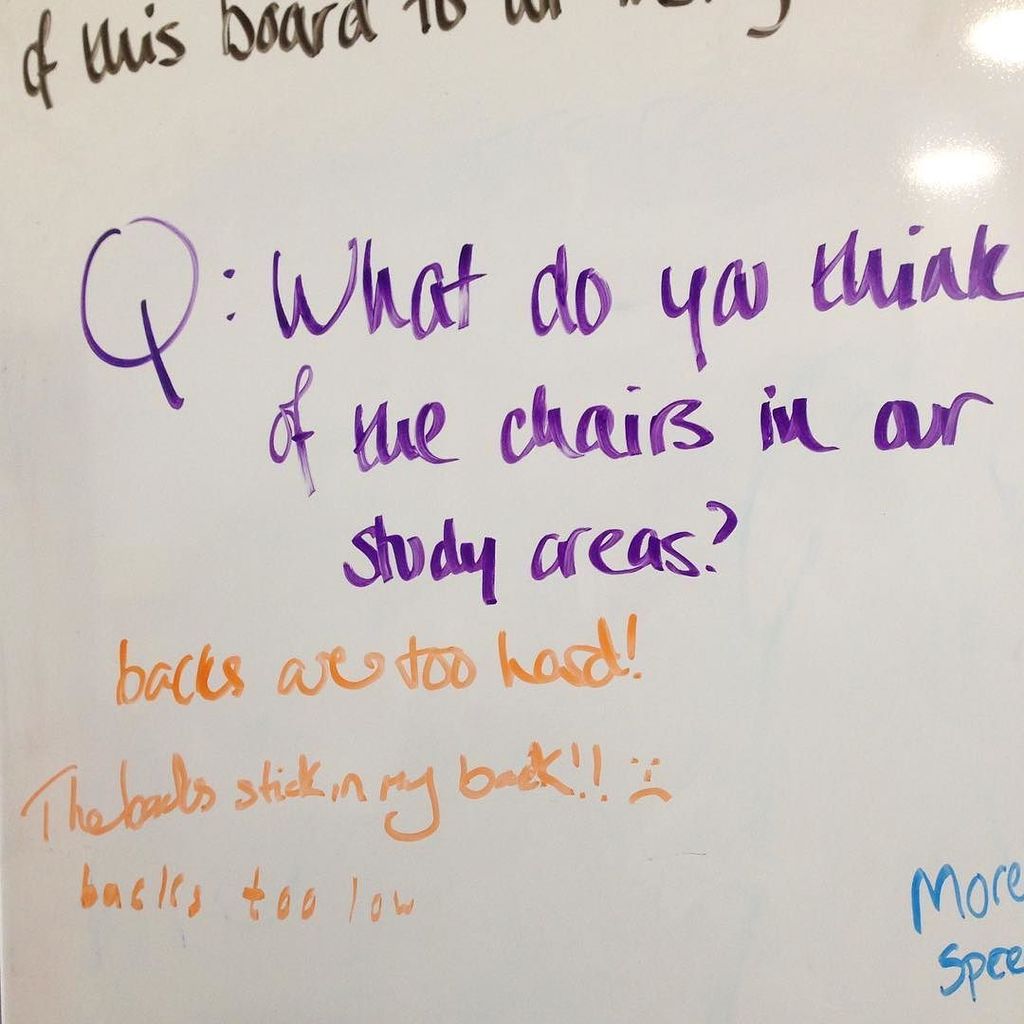 of this board to
Q: What do you think
of the chairs in our
study areas?
backs are too hard!
The backs stick in my back!! :(
backs too low
More
Spee